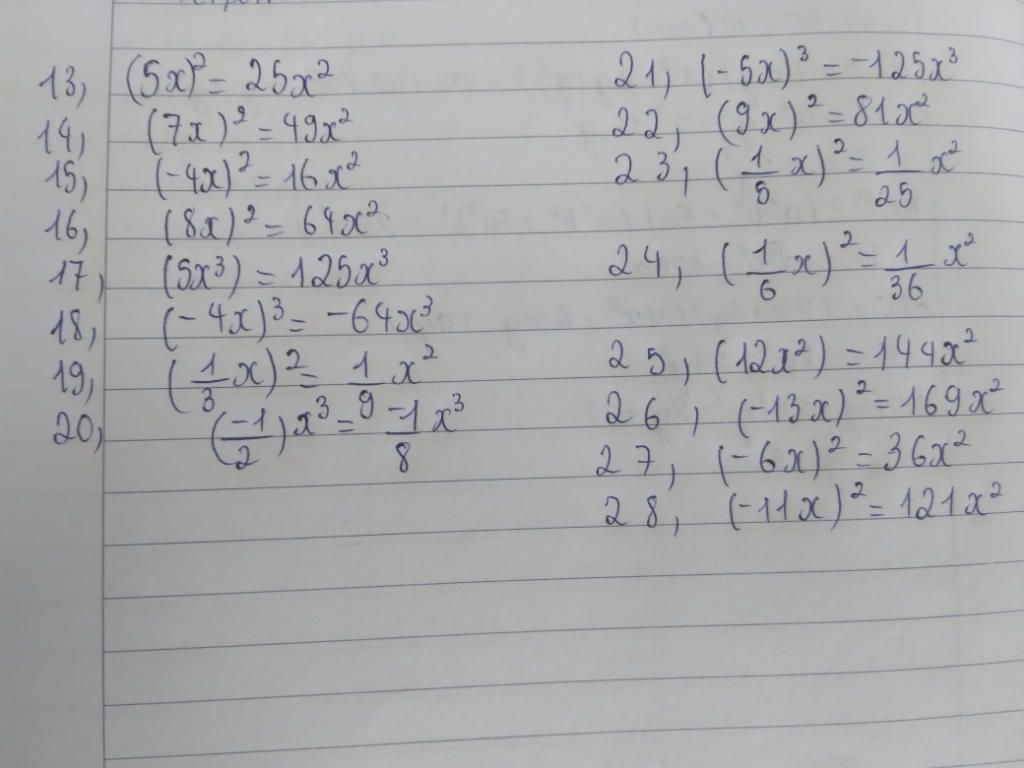 13, (5x)² = 25x²
14, (7x)² = 49x²
15, (-4x)² = 16x²
16, (8x)² = 64x²
17, (5x³) = 125x³
18, (-4x)³ = -64x³
19, (1/3 x)² = 1/9 x²
20, (-1/2) x³ = -1/8 x³
21, (-5x)³ = -125x³
22, (9x)² = 81x²
23, (1/5 x)² = 1/25 x²
24, (1/6 x)² = 1/36 x²
25, (12x²) = 144x²
26, (-13x)² = 169x²
27, (-6x)² = 36x²
28, (-11x)² = 121x²